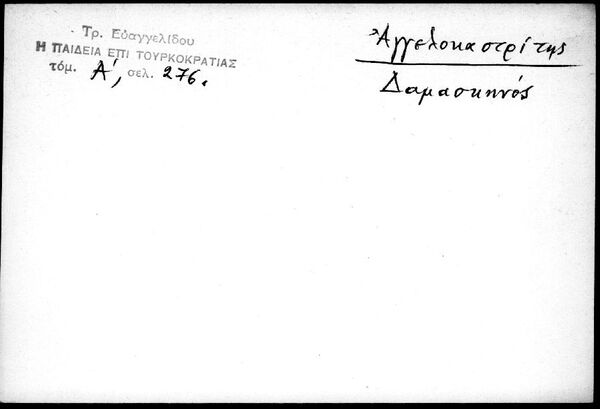 Τρ. Εὐαγγελίδου
Η ΠΑΙΔΕΙΑ ΕΠΙ ΤΟΥΡΚΟΚΡΑΤΙΑΣ
τόμ. Α', σελ. 276.
Ἀγγελοκαστρίτης
Δαμασκηνός